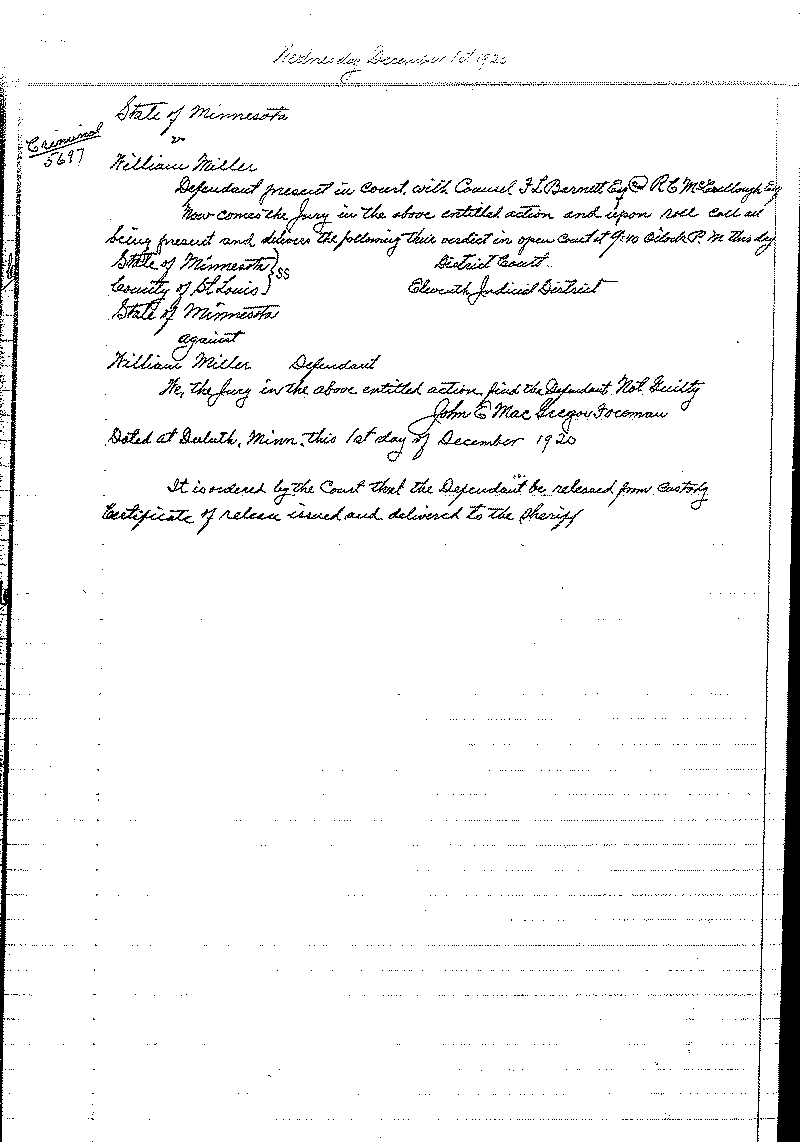 Wednesday December 1st 1920
State of Minnesota
vs
Criminal
5697
William Miller
Defendant present in court, with Counsel F L Barnett Esq and R C McCullough Esq
Now comes the Jury in the above entitled action and upon roll call all
being present and delivers the following their verdict in open Court at 9:40 O'clock P. M this day
State of Minnesota } SS District Court
County of St Louis } Eleventh Judicial District
State of Minnesota
against
William Miller Defendant
We, the Jury in the above entitled action find the Defendant Not Guilty
John E MacGregor Foreman
Dated at Duluth, Minn. this 1st day of December 1920
It is ordered by the Court that the Defendant be released from custody
Certificate of release issued and delivered to the Sheriff